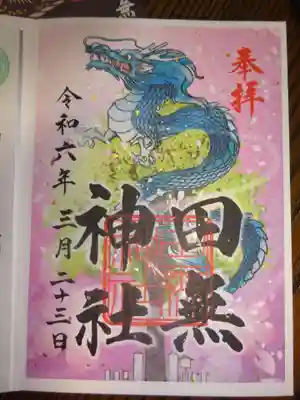 奉拝
田無
神社
令和六年三月二十三日